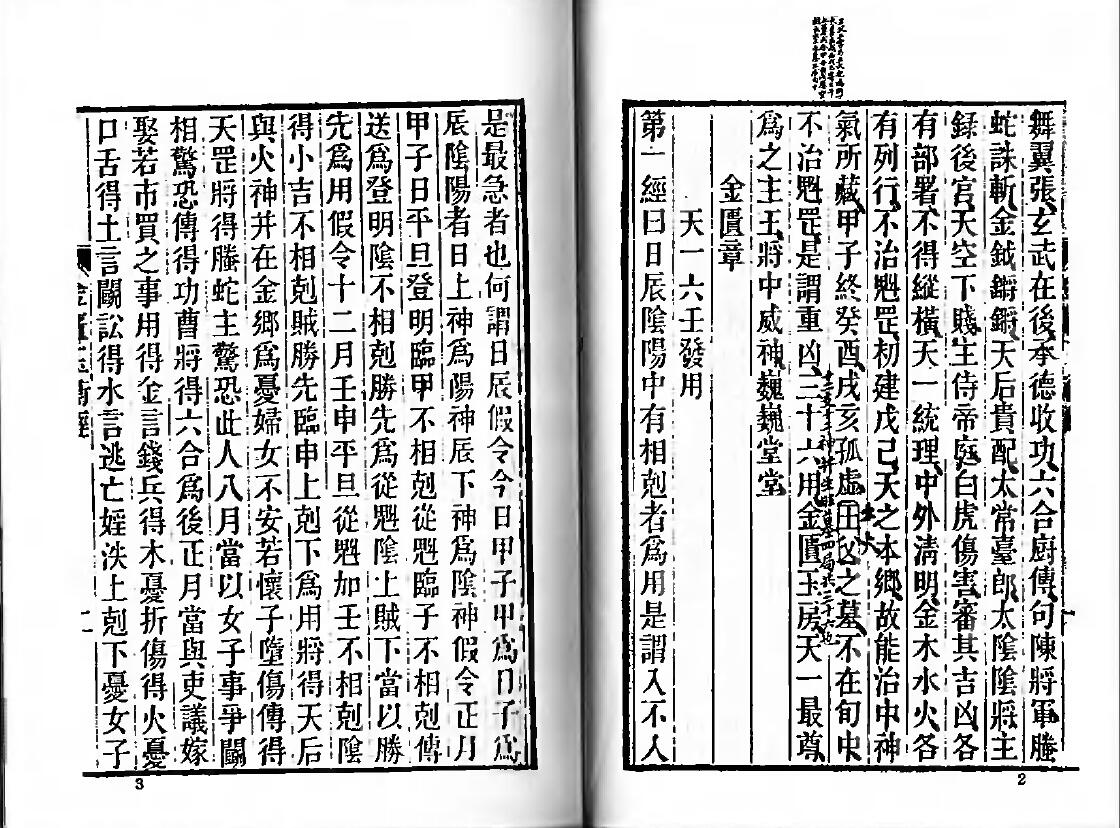 舞翼張玄武在後承德收功六合厨傳句陳將軍螣
蛇誅斬金鉞鏘鏘天后貴配太常臺郎太陰陰將主
錄後宮天空下賤主侍帝庭白虎傷害審其吉凶各
有部署不得縱橫天一統理中外清明金木水火各
有列行不治魁罡初建戊己天之本鄉故能治中神
氣所藏甲子終癸酉戌亥孤虛之墓不在旬中
不治魁罡是謂重凶三十六用金匱玉房天一最尊
爲之主王將中威神巍巍堂堂
金匱章
天一六壬發用
第一經曰日辰陰陽中有相剋者爲用是謂入不人
2
是最急者也何謂日辰假令今日甲子甲爲日子爲
辰陰陽者日上神爲陽神辰下神爲陰神假令正月
甲子日平旦登明臨甲不相剋從魁臨子不相剋傳
送爲登明陰不相剋勝先爲從魁陰上賊下當以勝
先爲用假令十二月壬申平旦從魁加壬不相剋陰
得小吉不相剋賊勝先臨申上剋下爲用將得天后
與火神并在金鄉爲憂婦女不安若懷子墮傷傳得
天罡將得螣蛇主驚恐此人八月當以女子事爭鬭
相驚恐傳得功曹將得六合爲後正月當與吏議嫁
娶若市買之事用得金言錢兵得木憂折傷得火憂
口舌得土言鬭訟得水言逃亡婬泆上剋下憂女子
金匱玉衡經
二
3